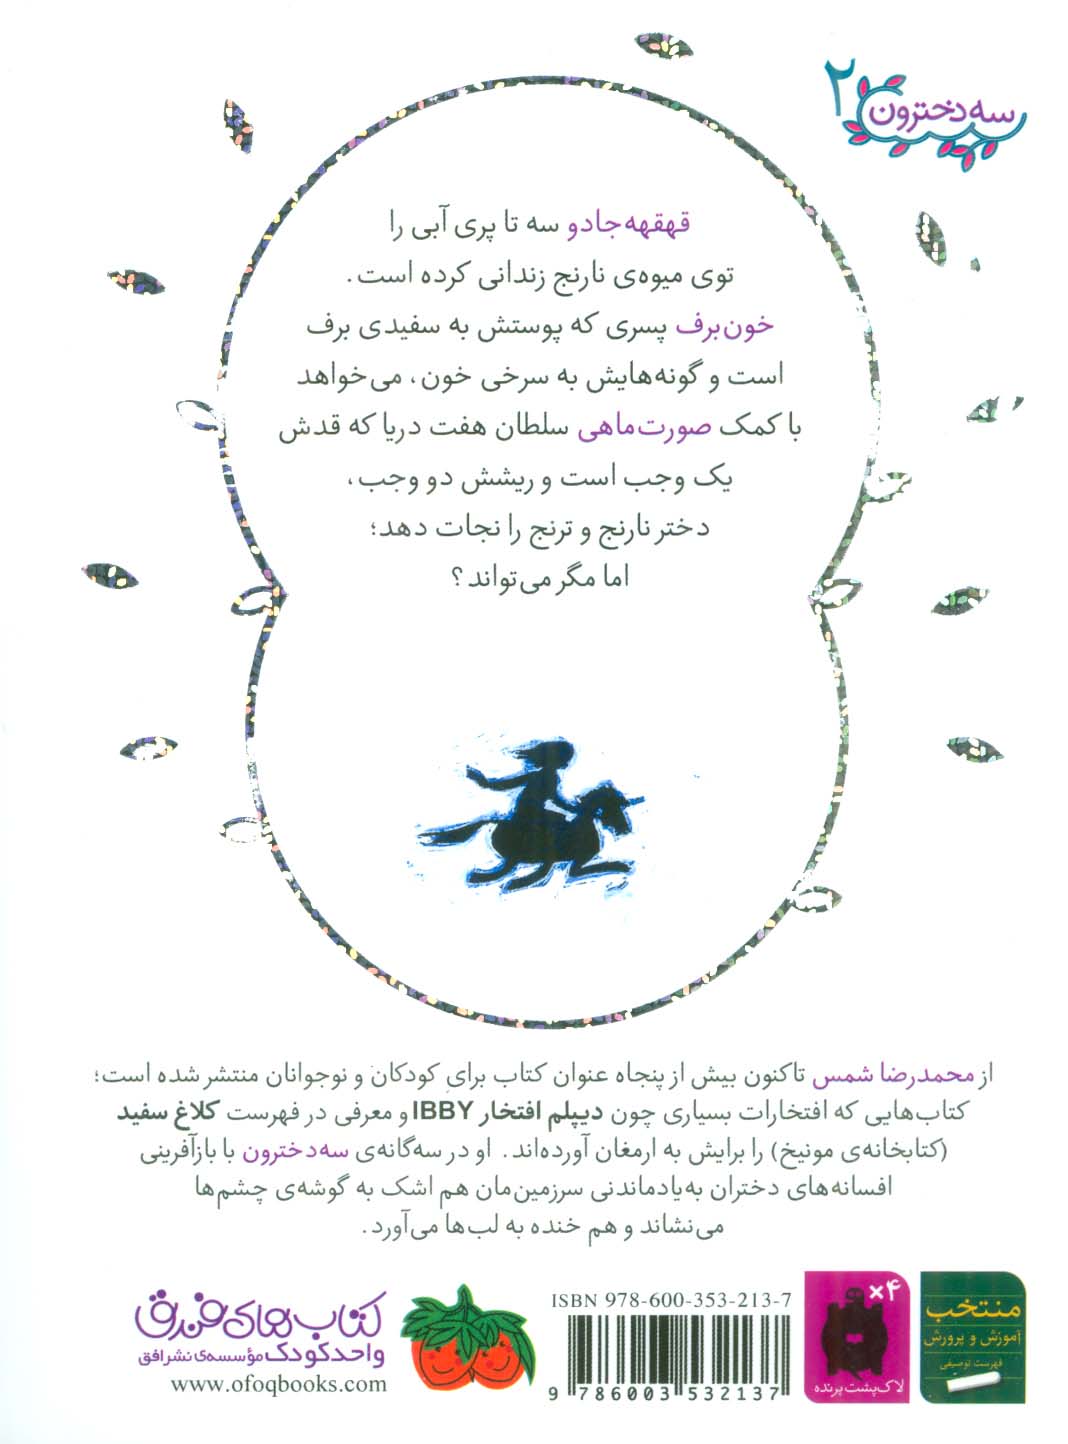 سه‌دخترون ۲
قهقهه‌جادو سه تا پری آبی را
توی میوه‌ی نارنج زندانی کرده است.
خون‌برف پسری که پوستش به سفیدی برف
است و گونه‌هایش به سرخی خون، می‌خواهد
با کمک صورت‌ماهی سلطان هفت دریا که قدش
یک وجب است و ریشش دو وجب،
دختر نارنج و ترنج را نجات دهد؛
اما مگر می‌تواند؟
از محمدرضا شمس تاکنون بیش از پنجاه عنوان کتاب برای کودکان و نوجوانان منتشر شده است؛
کتاب‌هایی که افتخارات بسیاری چون دیپلم افتخار IBBY و معرفی در فهرست کلاغ سفید
(کتابخانه‌ی مونیخ) را برایش به ارمغان آورده‌اند. او در سه‌گانه‌ی سه‌دخترون با بازآفرینی
افسانه‌های دختران به‌یادماندنی سرزمین‌مان هم اشک به گوشه‌ی چشم‌ها
می‌نشاند و هم خنده به لب‌ها می‌آورد.
منتخب
آموزش و پرورش
فهرست توصیفی
۴×
لاک‌پشت پرنده
ISBN 978-600-353-213-7
9 786003 532137
کتاب‌های فندق
واحد کودک مؤسسه‌ی نشر افق
www.ofoqbooks.com